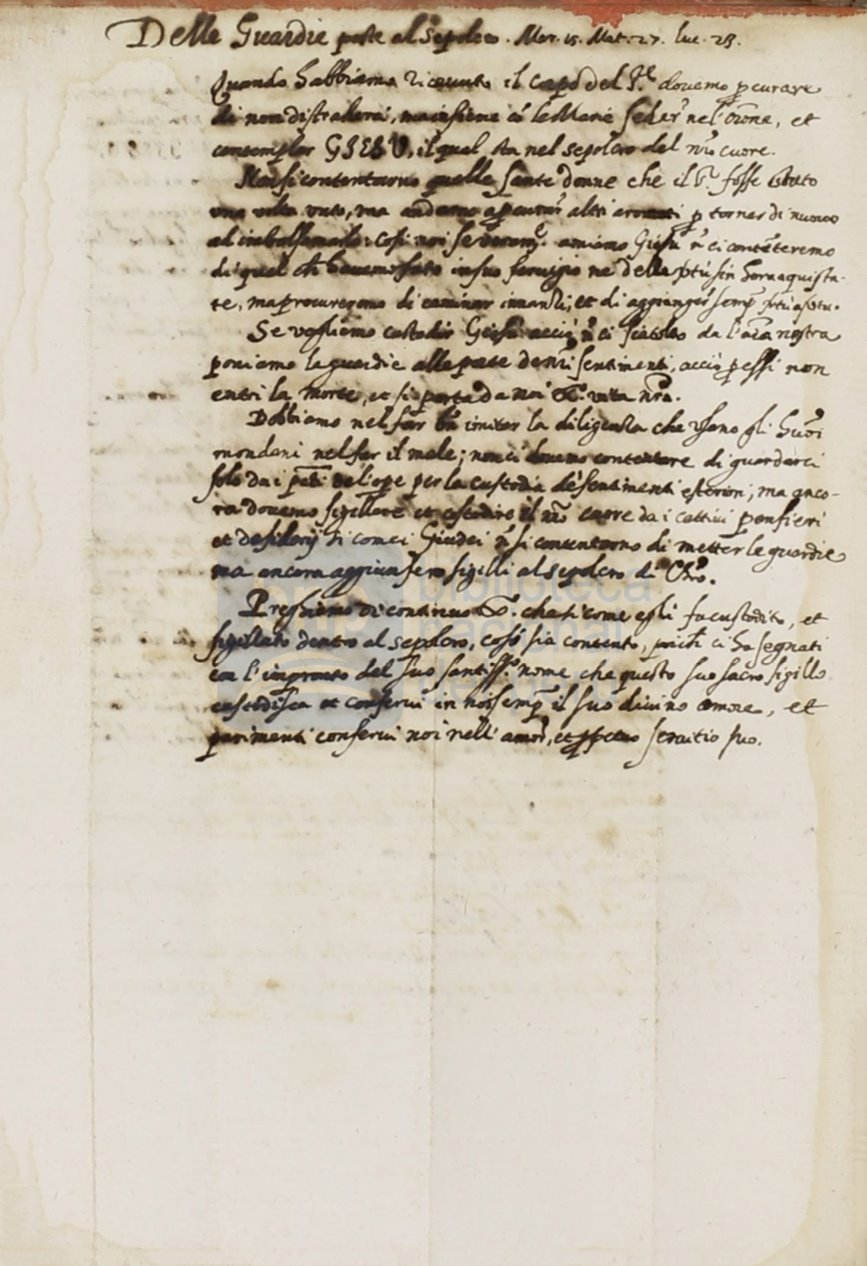 Delle Guardie poste al Sepolcro. Mar. 15. Mat. 27. Luc. 23.
Quando habbiamo riceuuto il Capo del S.re douemo ꝑcurare
di non distraherci, ma insieme cõ le Marie seder nel'orõne, et
contemplar GIESV, il qual sta nel sepolcro del nr̃o cuore.
Non si contentorno quelle sante donne che il S.r fosse stato
una volta unto, ma andorno a ꝑcurar altri aromati ꝑ tornar di nuouo
al imbalsamarlo: cosi noi se amiamo Giesu nõ ci contẽteremo
di quel ch' hauemo fatto in suo seruigio ne della v̾tù sin hora aquista-
te, ma procureremo di caminar inanzi, et di aggionger semp̃ v̾tù a v̾tu.
Se vogliamo custodir Giesu acciò nõ ci sia tolto da l'aĩa nostra
poniamo le guardie alle porte de nr̃i sentimenti, acciò ꝑ essi non
entri la morte, et si porta da noi vita nr̃a.
Dobbiamo nel far bñ imitar la diligenza che usano gli huõi
mondani nel far il male; non ci douemo contentare di guardarci
solo da i pcc̃ti del'oꝑe per la custodia de sentimenti esteriori, ma anco-
ra douemo sigillare et custodire il nr̃o cuore da i cattiui pensieri
et desiderij si come i Giudei nõ si contentorno di metter le guardie
ma ancora aggiunsero sigilli al sepolcro di Chr̃o.
Preghiamo di continuo che si come egli fu custodito, et
sigillato dentro al sepolcro, così sia contento, poich' ci ha segnati
con l'impronto del suo santiss.o nome che questo suo sacro sigillo
custodisca et conserui in noi semp̃ il suo diuino amore, et
parimenti conserui noi nell' amor, et ꝑpetuo seruitio suo.